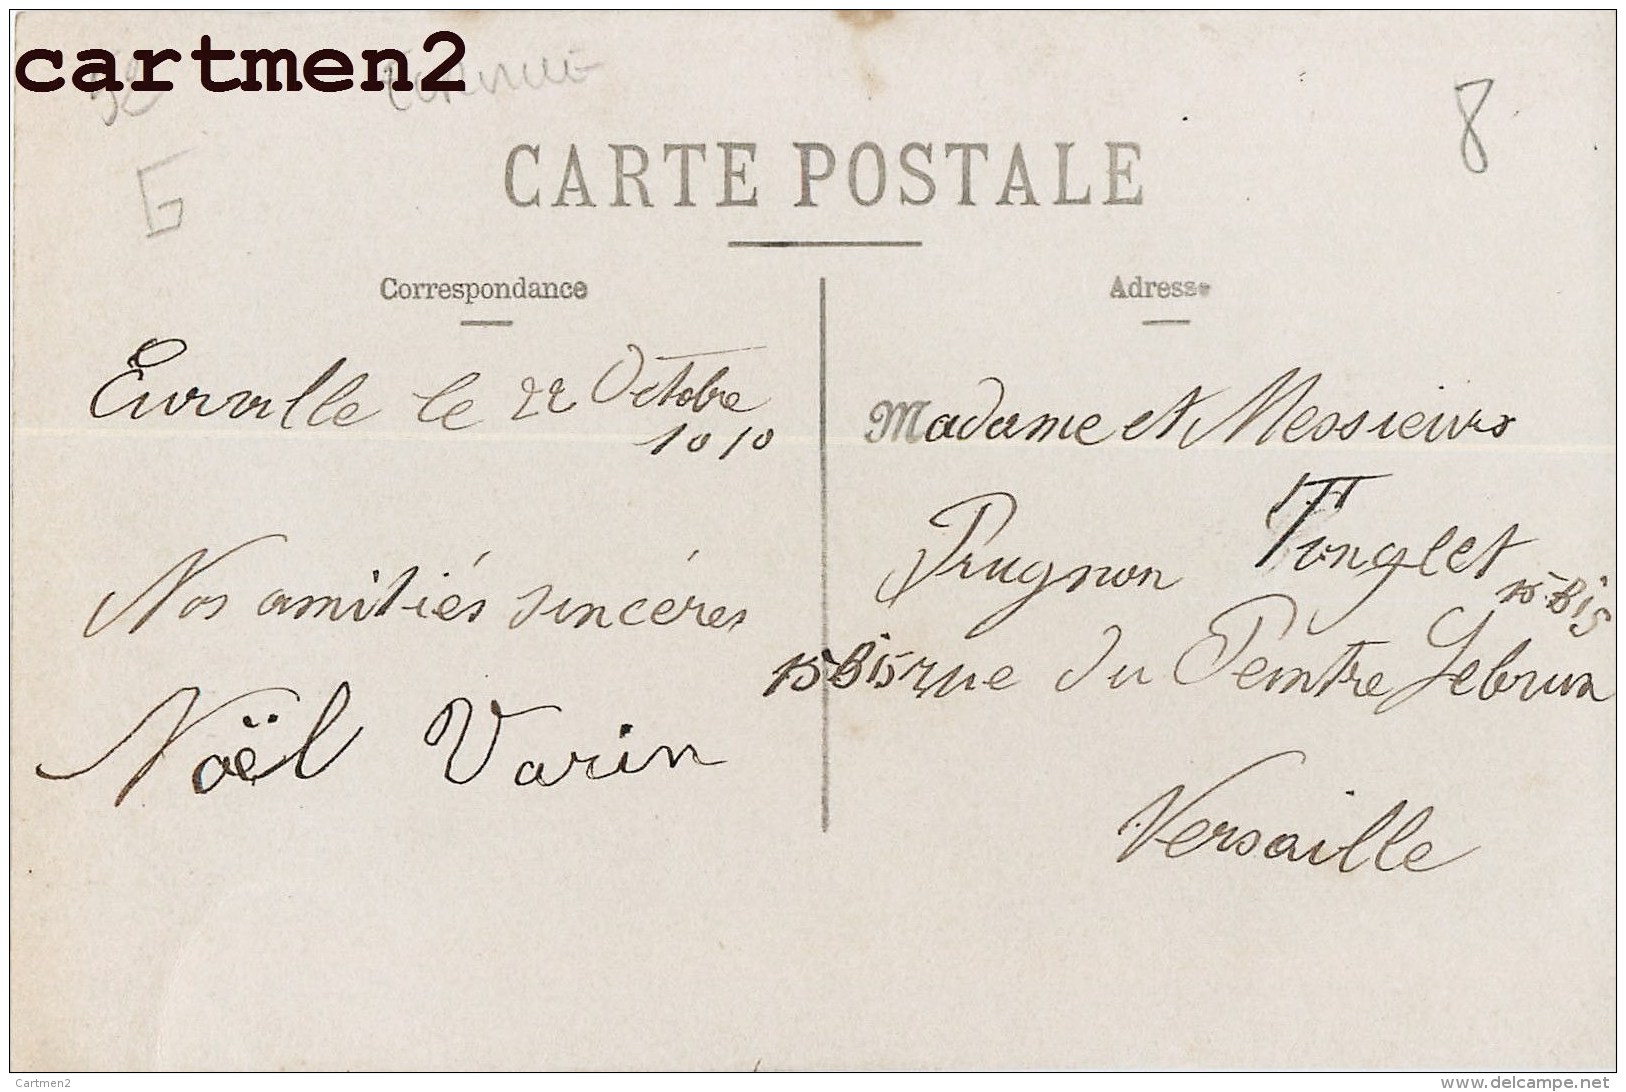 cartmen2
8
G
CARTE POSTALE
Correspondance
Eurville le 22 Octobre
1910
Nos amitiés sincéres
Noël Varin
Adresse
Madame et Messieurs
Prugnon Tonglet
15 Bis
15 Bis rue du Peintre Lebrun
Versaille
Cartmen2
www.delcampe.net